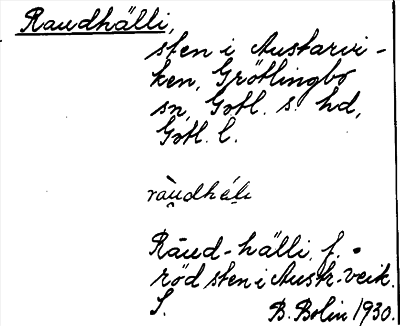 Raudhälli,
sten i Austarvi-
ken, Grötlingbo
sn, Gotl. s. hd,
Gotl. l.
Räud-hälli, f. =
röd sten i Austr-veik.
S. B. Bolin 1930.